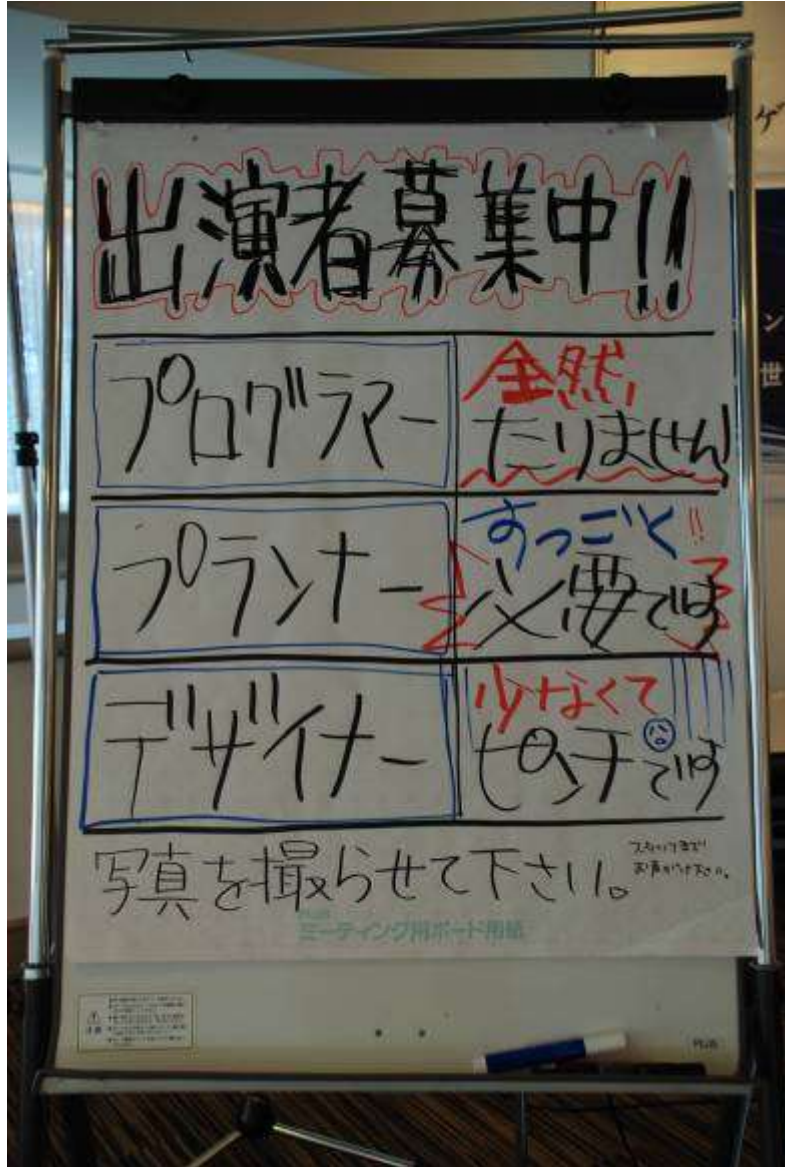 出演者募集中!!
プログラマー
全然
たりません!
プランナー
すっごく!!
必要です
デザイナー
少なくて
ピンチです
写真を撮らせて下さい。
スタッフまで
お声がけ下さい。
PLUS
ミーティング用ボード用紙
注意
PLUS
ン
世